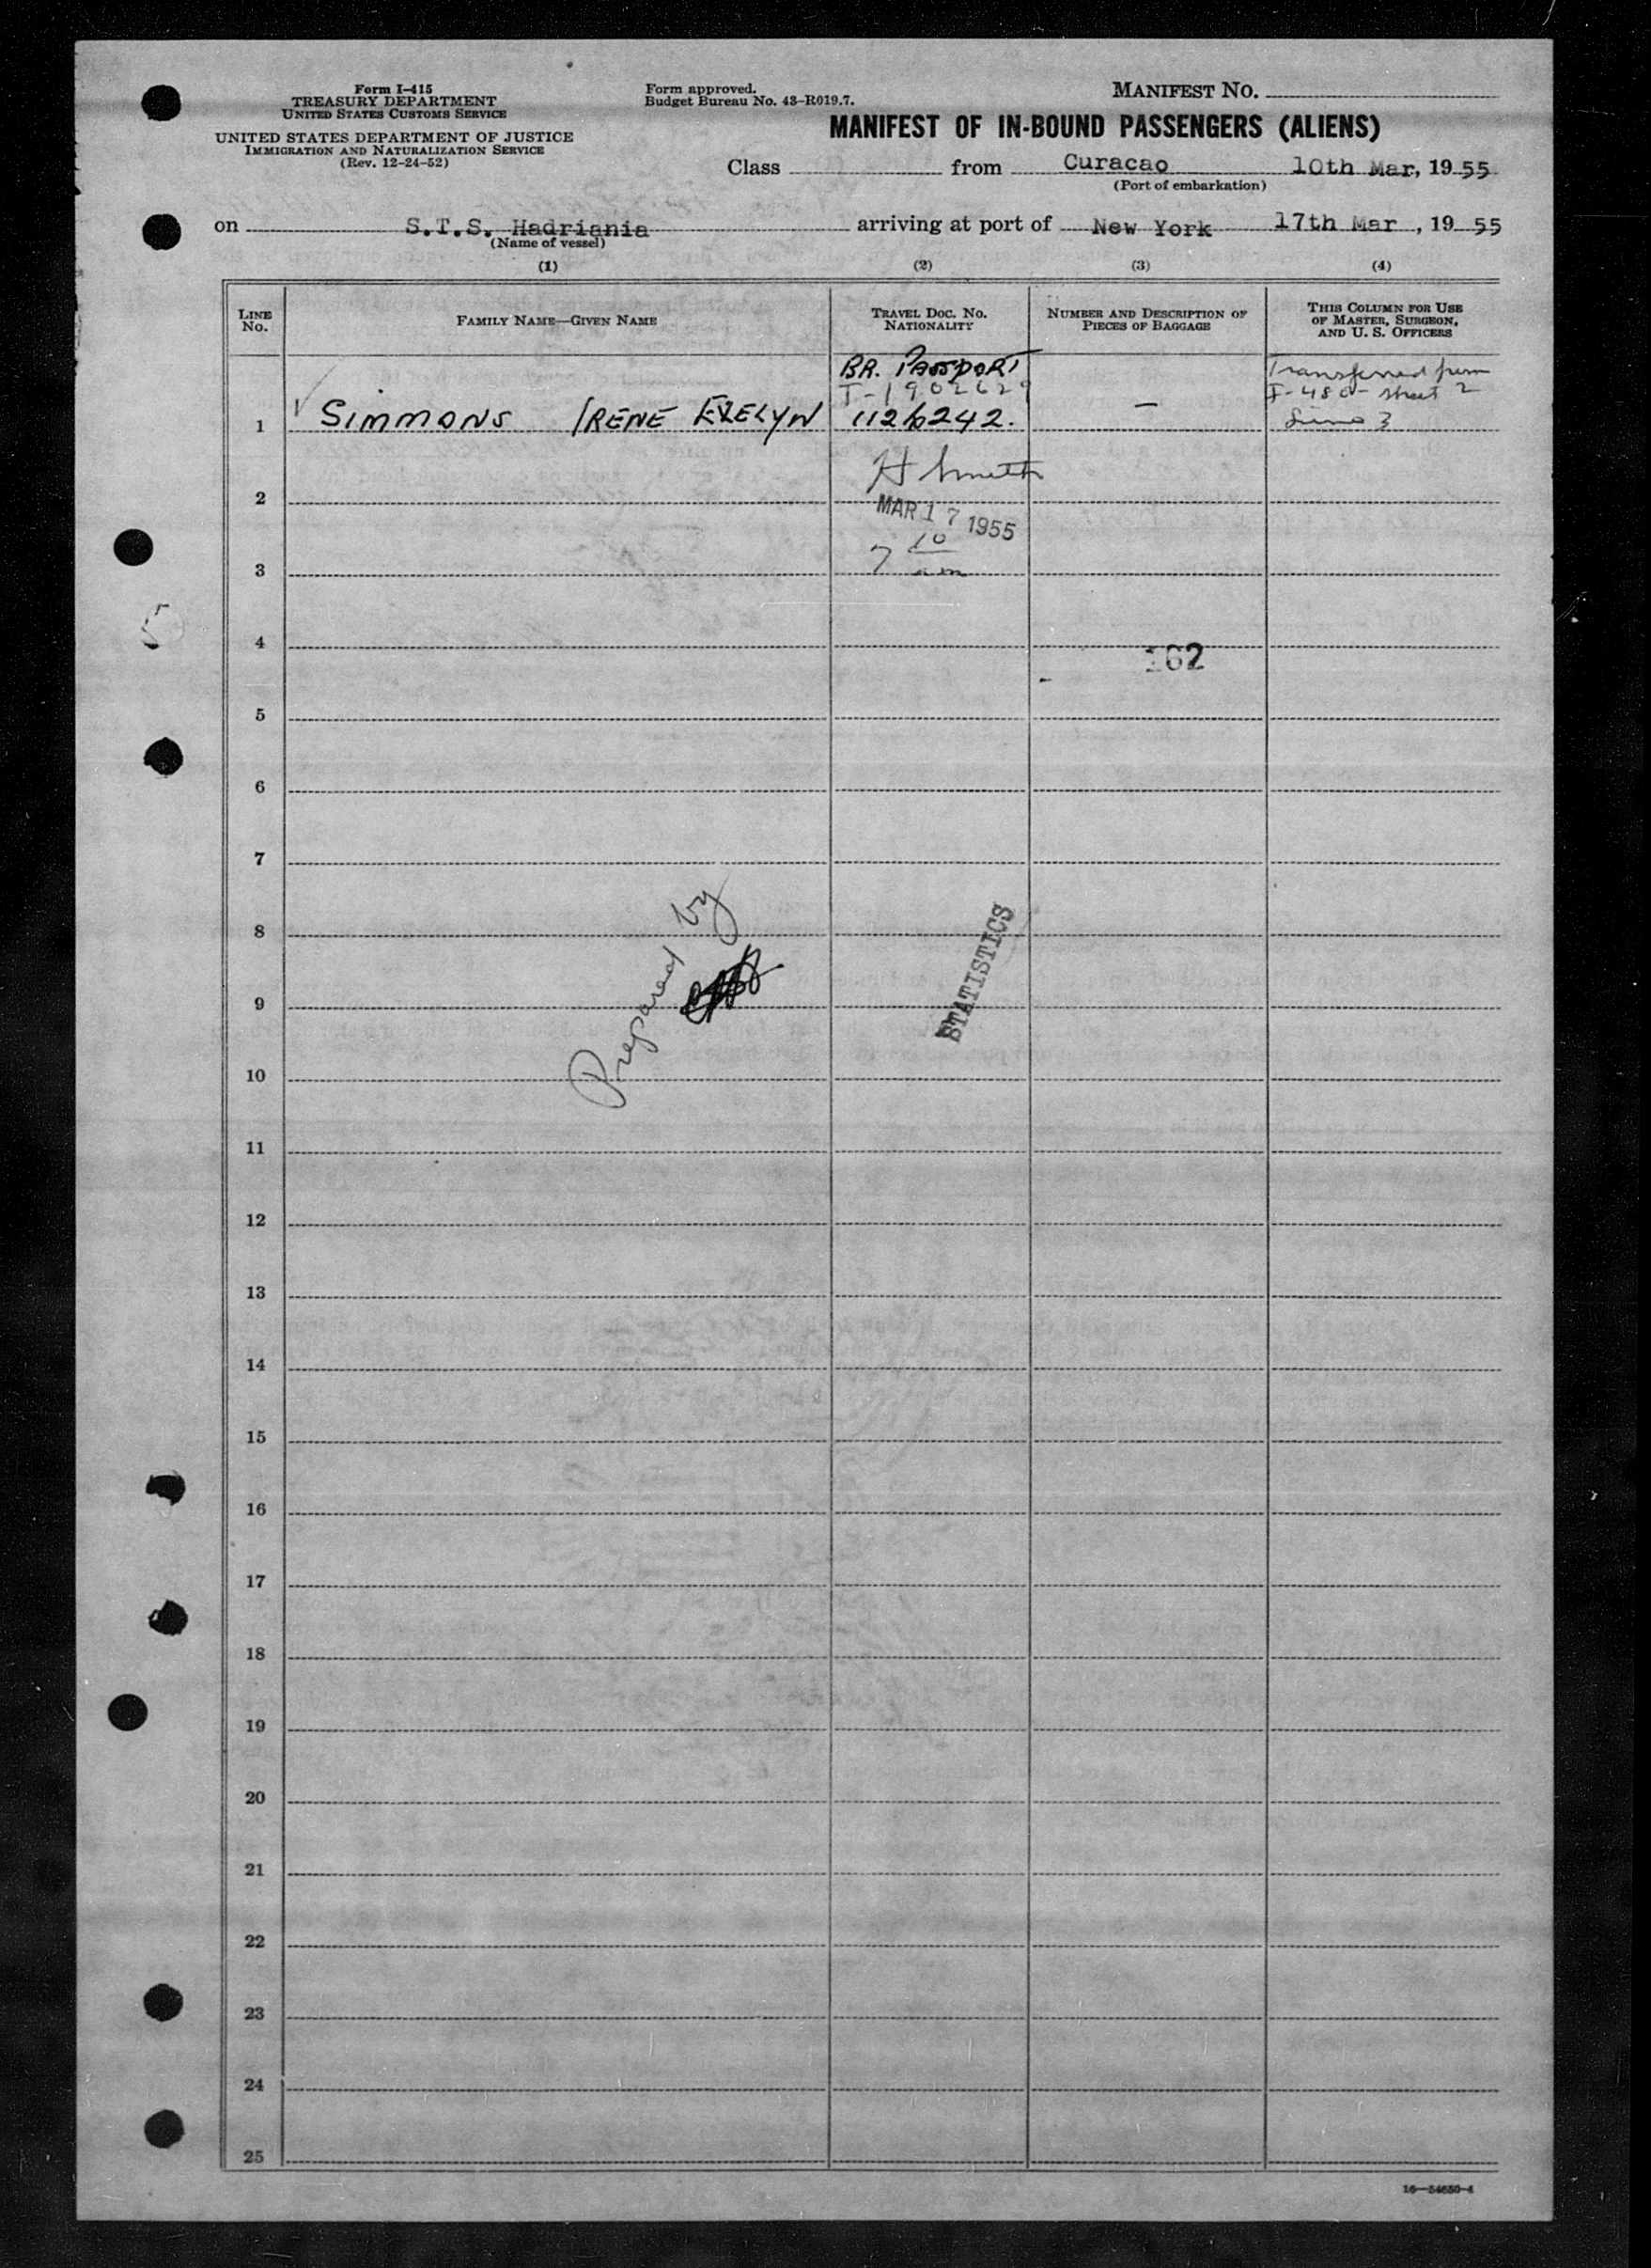 Form I-415
TREASURY DEPARTMENT
UNITED STATES CUSTOMS SERVICE
UNITED STATES DEPARTMENT OF JUSTICE
IMMIGRATION AND NATURALIZATION SERVICE
(Rev. 12-24-52)
Form approved.
Budget Bureau No. 43-R019.7.
MANIFEST NO.
MANIFEST OF IN-BOUND PASSENGERS (ALIENS)
Class from Curacao 10th Mar, 1955
(Port of embarkation)
on S.T.S. Hadriania arriving at port of New York 17th Mar, 1955
(Name of vessel)
(1) (2) (3) (4)
LINE No.
FAMILY NAME—GIVEN NAME
TRAVEL DOC. NO. NATIONALITY
NUMBER AND DESCRIPTION OF PIECES OF BAGGAGE
THIS COLUMN FOR USE OF MASTER, SURGEON, AND U. S. OFFICERS
BR. PASSPORT
I-1902629
Transferred from
I-480- sheet 2
Line 3
1 SIMMONS IRENE EVELYN 1126242. —
H Smith
2
MAR 17 1955
7 10 am
3
4
162
5
6
7
8
Prepared by
STATISTICS
9
10
11
12
13
14
15
16
17
18
19
20
21
22
23
24
25